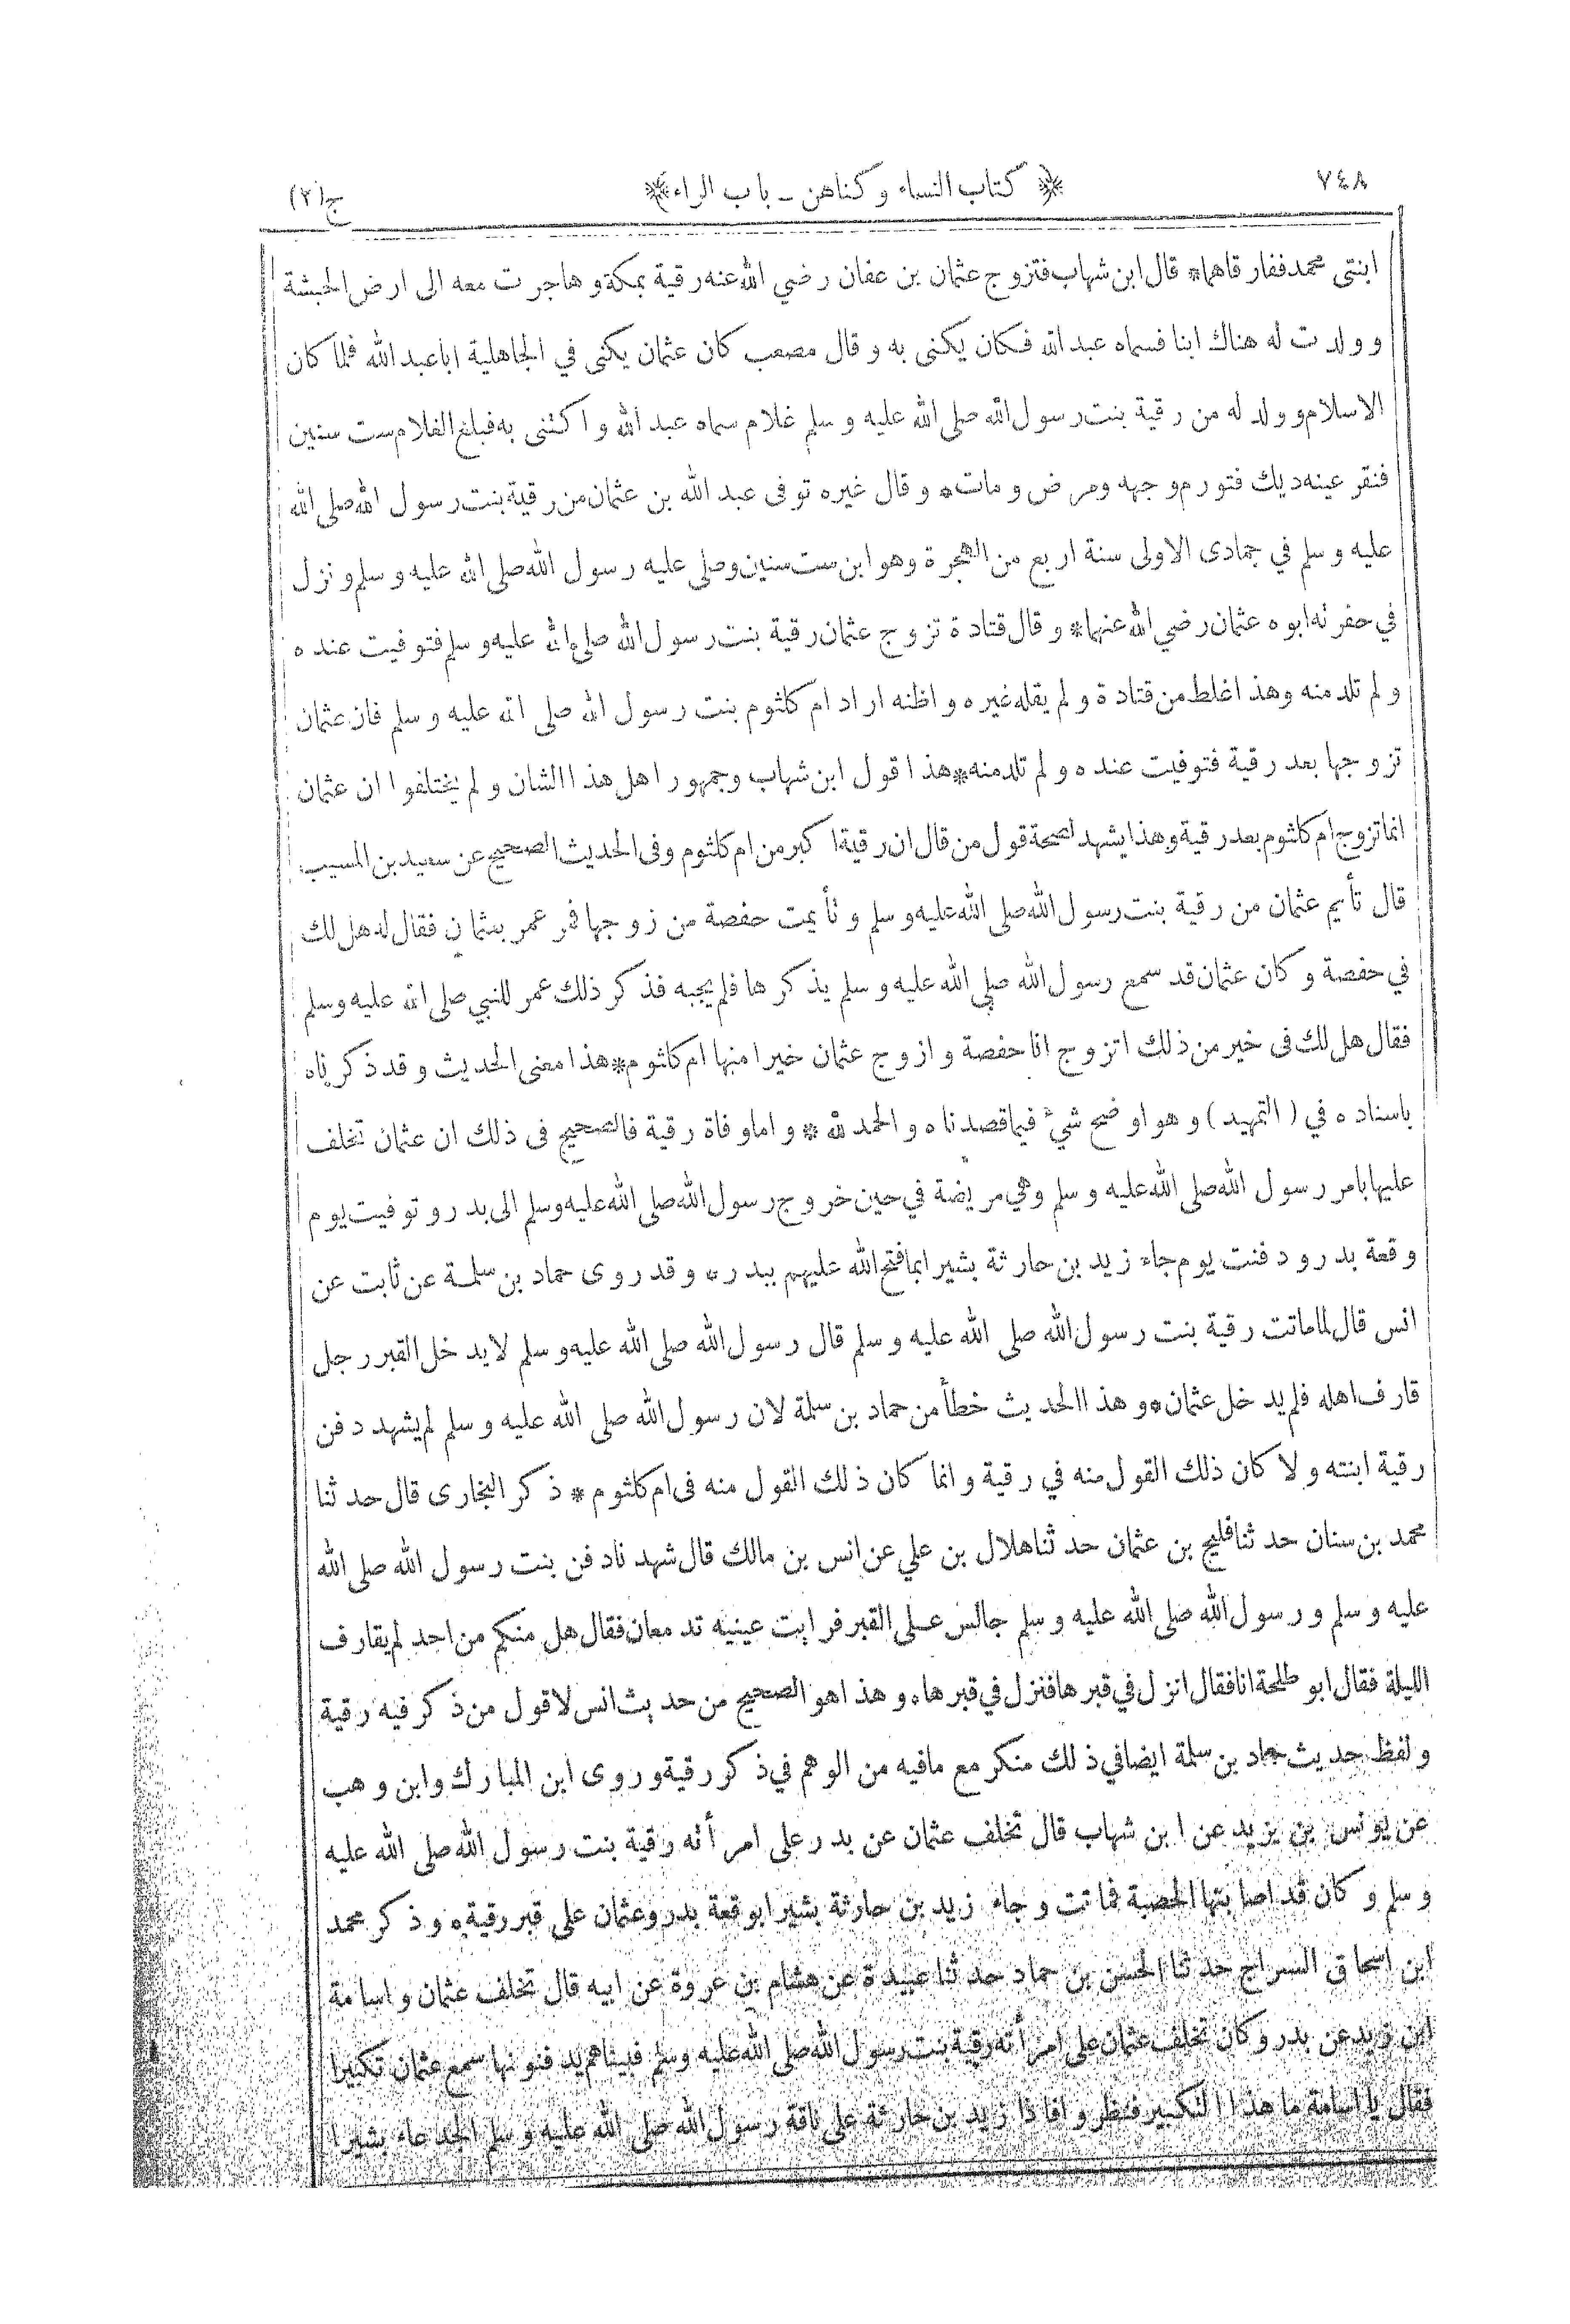 ٧٤٨ ﴿ كتاب النساء وكناهن - باب الراء ﴾ ج(٢)
ابنتى محمد ففارقاهما* قال ابن شهاب فتزوج عثمان بن عفان رضي الله عنه رقية بمكة وهاجرت معه الى ارض الحبشة
وولدت له هناك ابنا فسماه عبد الله فكان يكنى به وقال مصعب كان عثمان يكنى في الجاهلية ابا عبد الله فلما كان
الاسلام وولد له من رقية بنت رسول الله صلى الله عليه وسلم غلام سماه عبد الله واكتنى به فبلغ الغلام ست سنين
فنقر عينه ديك فتورم وجهه ومرض ومات* وقال غيره توفى عبد الله بن عثمان من رقية بنت رسول الله صلى الله
عليه وسلم في جمادى الاولى سنة اربع من الهجرة وهو ابن ست سنين وصلى عليه رسول الله صلى الله عليه وسلم ونزل
في حفرته ابوه عثمان رضي الله عنهما* وقال قتادة تزوج عثمان رقية بنت رسول الله صلى الله عليه وسلم فتوفيت عنده
ولم تلد منه وهذا غلط من قتادة ولم يقله غيره واظنه اراد ام كلثوم بنت رسول الله صلى الله عليه وسلم فان عثمان
تزوجها بعد رقية فتوفيت عنده ولم تلد منه* هذا قول ابن شهاب وجمهور اهل هذا الشان ولم يختلفوا ان عثمان
انما تزوج ام كلثوم بعد رقية وهذا يشهد لصحة قول من قال ان رقية اكبر من ام كلثوم وفى الحديث الصحيح عن سعيد بن المسيب
قال تأيم عثمان من رقية بنت رسول الله صلى الله عليه وسلم وتأيمت حفصة من زوجها فمر عمر بعثمان فقال له هل لك
في حفصة وكان عثمان قد سمع رسول الله صلى الله عليه وسلم يذكرها فلم يجبه فذكر ذلك عمر للنبي صلى الله عليه وسلم
فقال هل لك فى خير من ذلك اتزوج انا حفصة وازوج عثمان خيرا منها ام كلثوم* هذا معنى الحديث وقد ذكرناه
باسناده في (التمهيد) وهو اوضح شيء فيما قصدناه والحمد لله* واما وفاة رقية فالصحيح فى ذلك ان عثمان تخلف
عليها بامر رسول الله صلى الله عليه وسلم وهي مريضة في حين خروج رسول الله صلى الله عليه وسلم الى بدر وتوفيت يوم
وقعة بدر ودفنت يوم جاء زيد بن حارثة بشيرا بما فتح الله عليهم ببدر* وقد روى حماد بن سلمة عن ثابت عن
انس قال لما ماتت رقية بنت رسول الله صلى الله عليه وسلم قال رسول الله صلى الله عليه وسلم لا يدخل القبر رجل
قارف اهله فلم يدخل عثمان* وهذا الحديث خطأ من حماد بن سلمة لان رسول الله صلى الله عليه وسلم لم يشهد دفن
رقية ابنته ولا كان ذلك القول منه في رقية وانما كان ذلك القول منه فى ام كلثوم* ذكر البخارى قال حدثنا
محمد بن سنان حدثنا فليح بن عثمان حدثنا هلال بن علي عن انس بن مالك قال شهدنا دفن بنت رسول الله صلى الله
عليه وسلم ورسول الله صلى الله عليه وسلم جالس على القبر فرايت عينيه تدمعان فقال هل منكم من احد لم يقارف
الليلة فقال ابو طلحة انا فقال انزل في قبرها فنزل في قبرها* وهذا هو الصحيح من حديث انس لا قول من ذكر فيه رقية
ولفظ حديث حماد بن سلمة ايضا في ذلك منكر مع ما فيه من الوهم في ذكر رقية وروى ابن المبارك وابن وهب
عن يونس بن يزيد عن ابن شهاب قال تخلف عثمان عن بدر على امرأته رقية بنت رسول الله صلى الله عليه
وسلم وكان قد اصابتها الحصبة فماتت وجاء زيد بن حارثة بشيرا بوقعة بدر وعثمان على قبر رقية* وذكر محمد
ابن اسحاق السراج حدثنا الحسن بن حماد حدثنا عبيدة عن هشام بن عروة عن ابيه قال تخلف عثمان واسامة
ابن زيد عن بدر وكان تخلف عثمان على امرأته رقية بنت رسول الله صلى الله عليه وسلم فبيناهم يدفنونها سمع عثمان تكبيرا
فقال يا اسامة ما هذا التكبير فنظروا فاذا زيد بن حارثة على ناقة رسول الله صلى الله عليه وسلم الجدعاء بشيرا